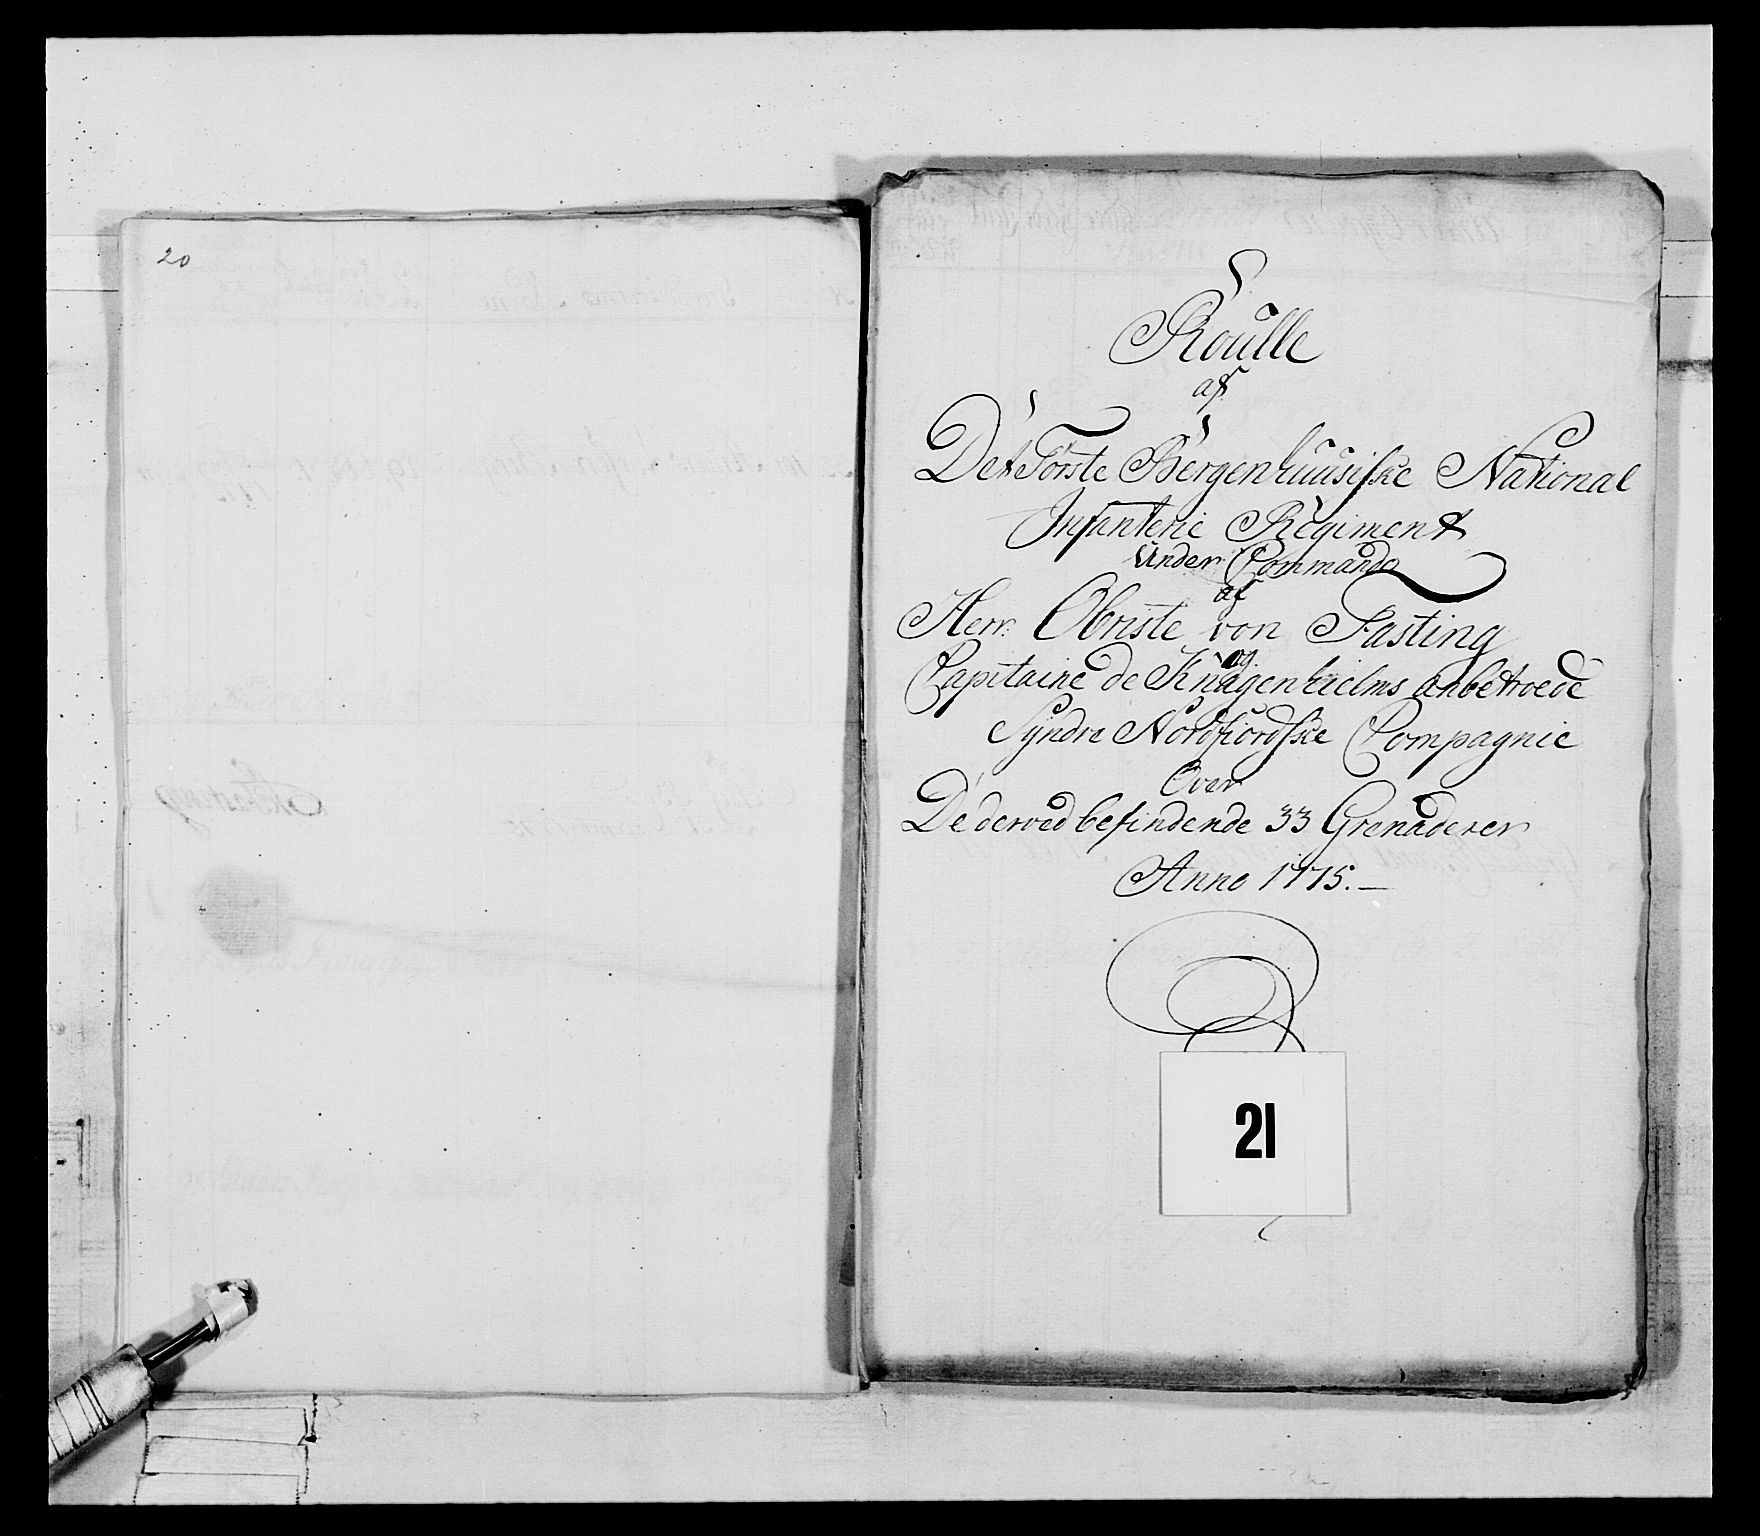 20
Roulle
af
Det Første Bergenhuusiske National
Infanterie Regiment
Under Commando
af
Herr Obriste von Fasting
og
Capitaine de Knagenhielms anbetroede
Syndre Nordfiordske Compagnie
Over
De derved befindende 33 Grenaderer
Anno 1775.
21